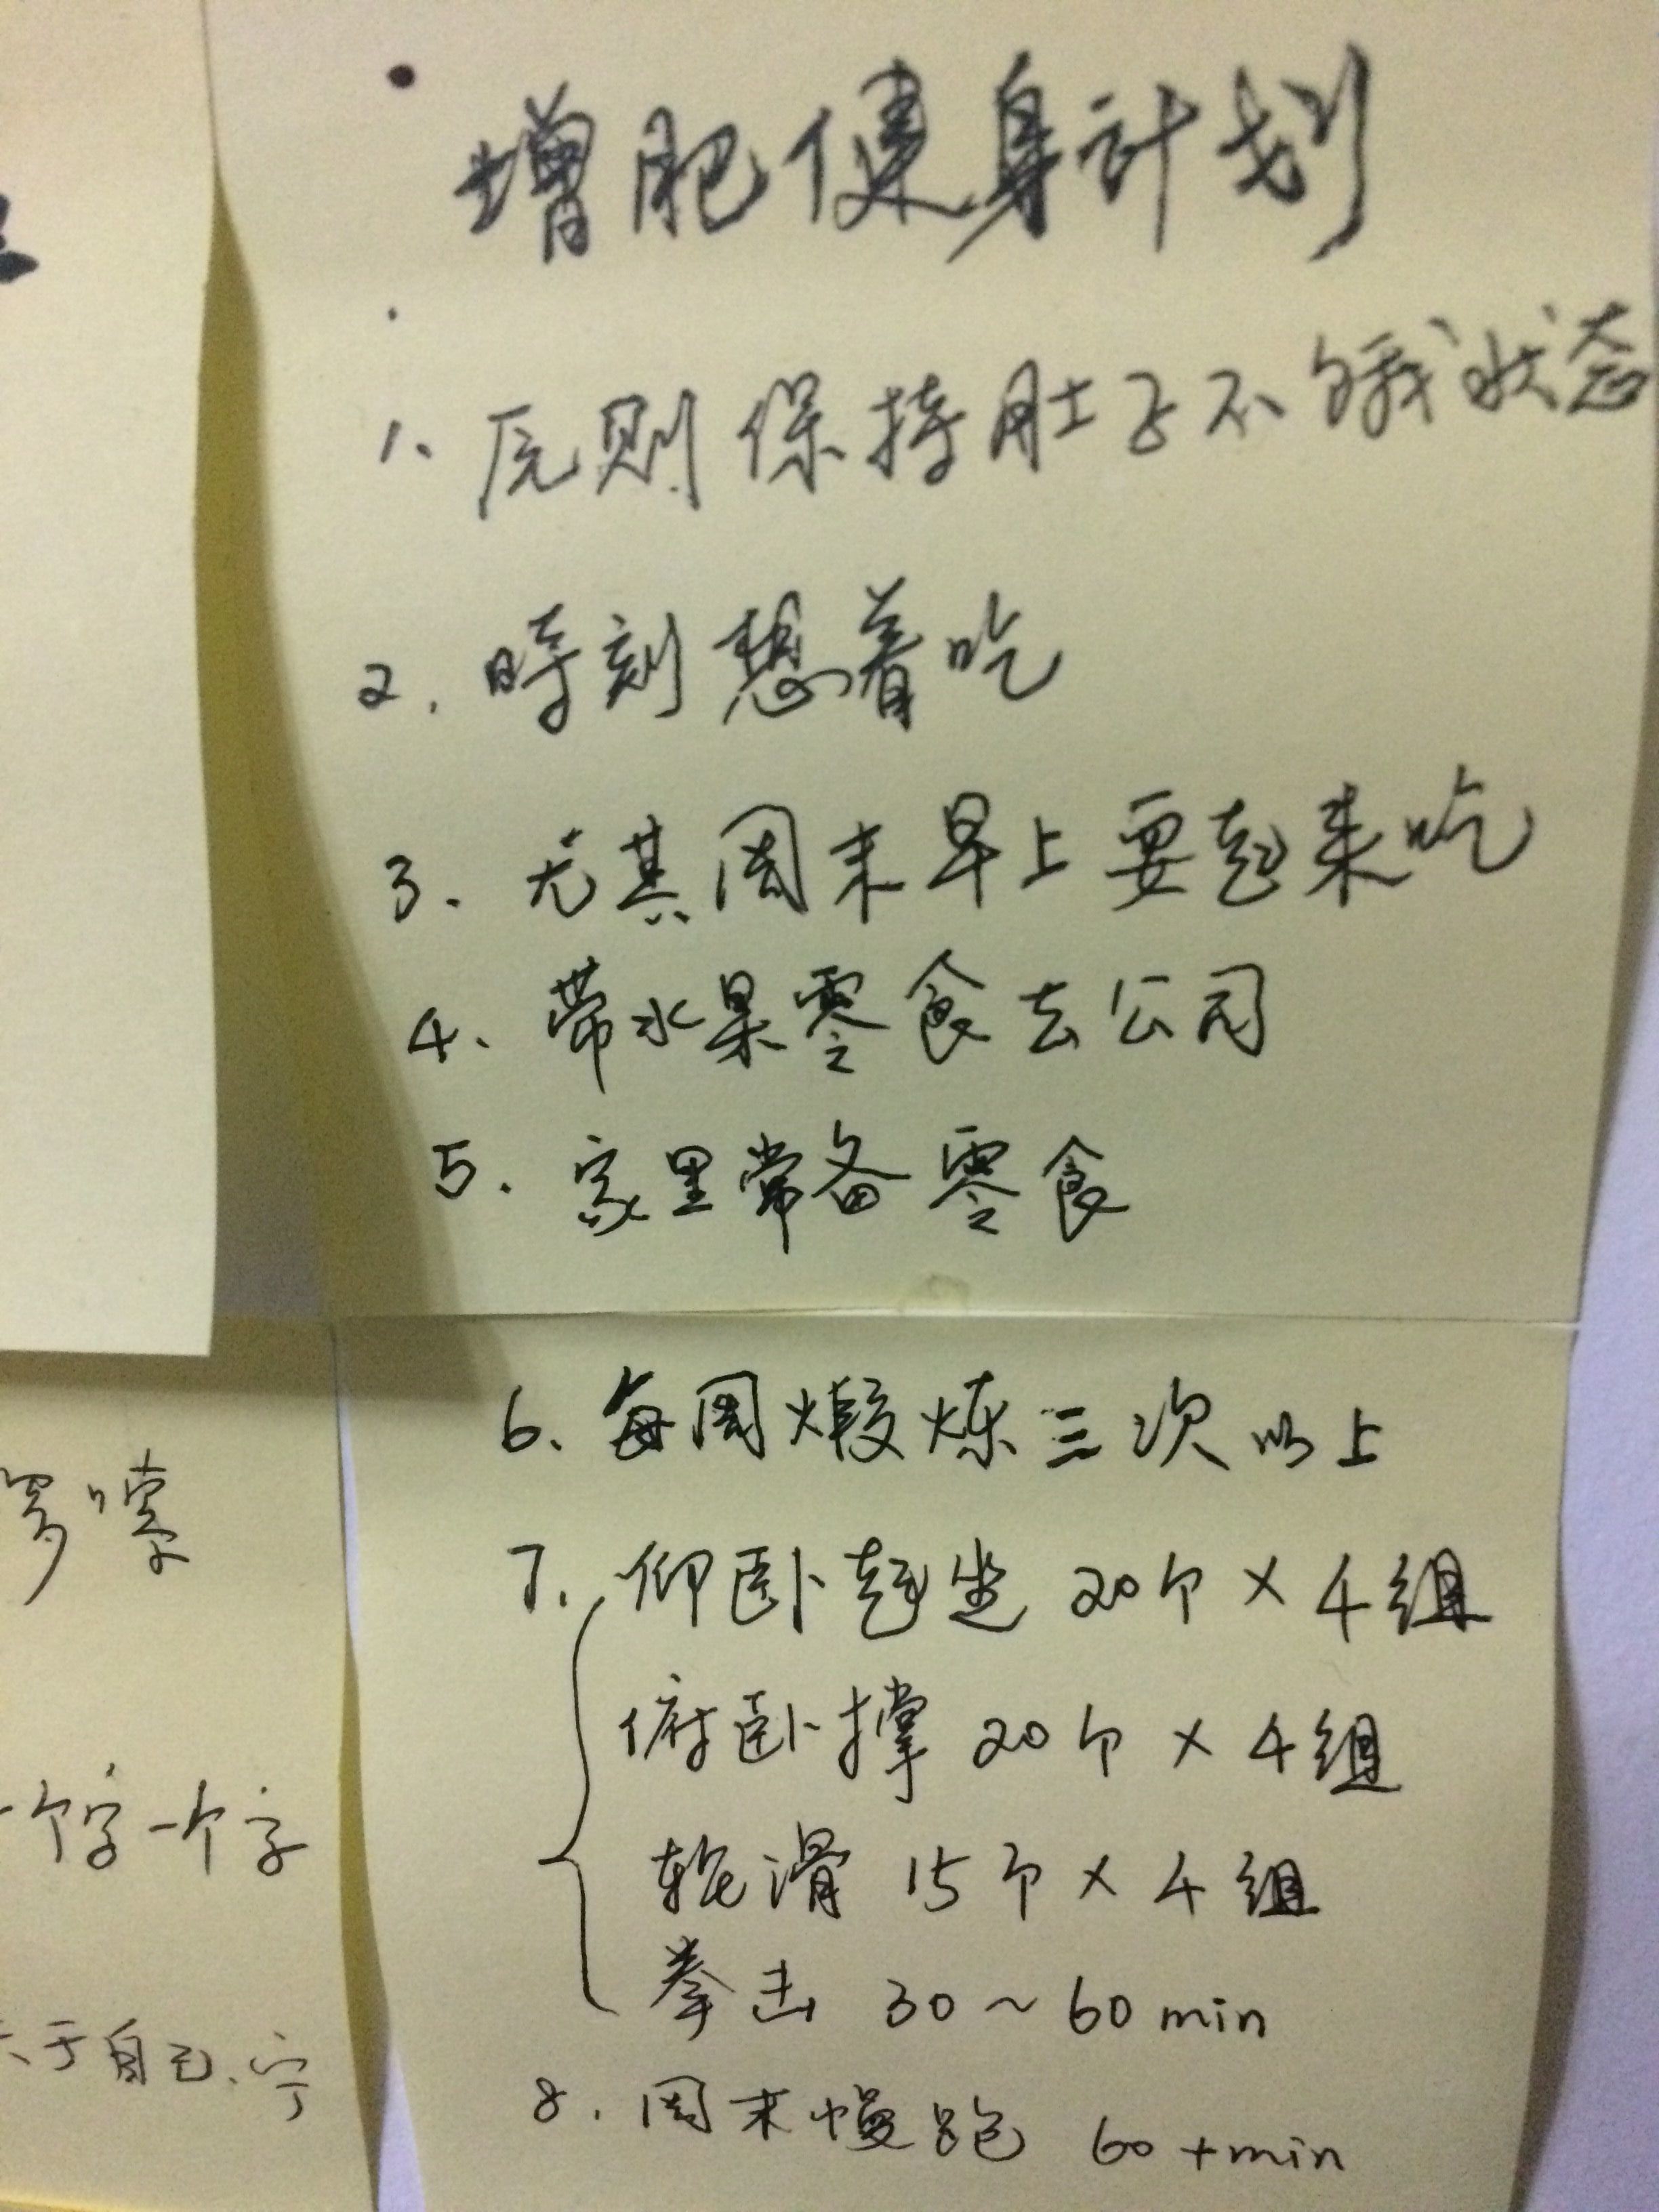 增肥健身计划
1、原则保持肚子不饿状态
2. 時刻想着吃
3. 尤其周末早上要起来吃
4、带水果零食去公司
5. 家里常备零食
6、每周煅炼三次以上
7、仰卧起坐 20个×4组
俯卧撑 20个×4组
轮滑 15个×4组
拳击 30~60min
8. 周末慢跑 60+min
一个字一个字
于自己、宁